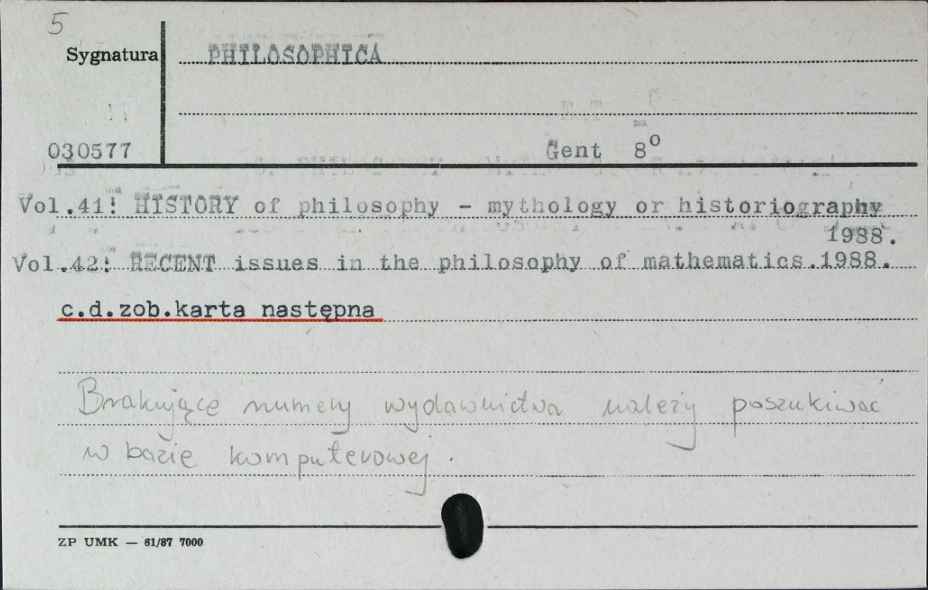 5
Sygnatura PHILOSOPHICA
030577 Gent 8º
Vol.41: HISTORY of philosophy - mythology or historiography
1988.
Vol.42: RECENT issues in the philosophy of mathematics.1988.
c.d.zob.karta następna
Brakujące numery wydawnictwa należy poszukiwać
w bazie komputerowej.
ZP UMK — 61/87 7000